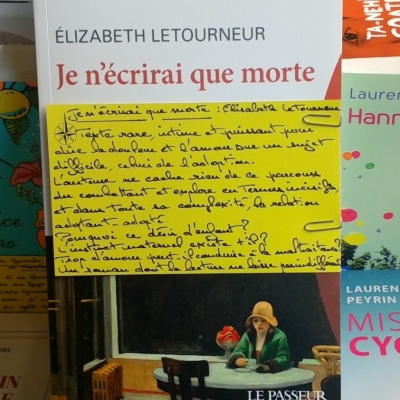 ÉLIZABETH LETOURNEUR
Je n'écrirai que morte
Je n'écrirai que morte : Elisabeth Letourneur
Texte rare, intime et puissant pour
dire la douleur et l'amour sur un sujet
difficile, celui de l'adoption.
L'auteure ne cache rien de ce parcours
du combattant et explore en termes incisifs,
et dans toute sa complexité, la relation
adoptant-adopté.
Pourquoi ce désir d'enfant?
L'instinct maternel existe-t-il?
Trop d'amour peut-il conduire à la maltraitance?
Un roman dont la lecture ne laisse pas indifférent
LE PASSEUR
TA-NEH
COAT
Lauren
Hann
LAUREN
PEYRIN
MIS
CYC
ice